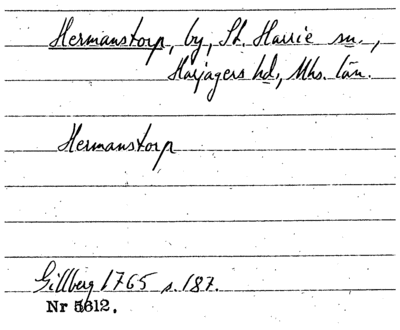 Hermanstorp, by, St. Harrie sn.,
Harjagers hd., Mhs. län.
Hermanstorp
Gillberg 1765 s. 187.
Nr 5612.